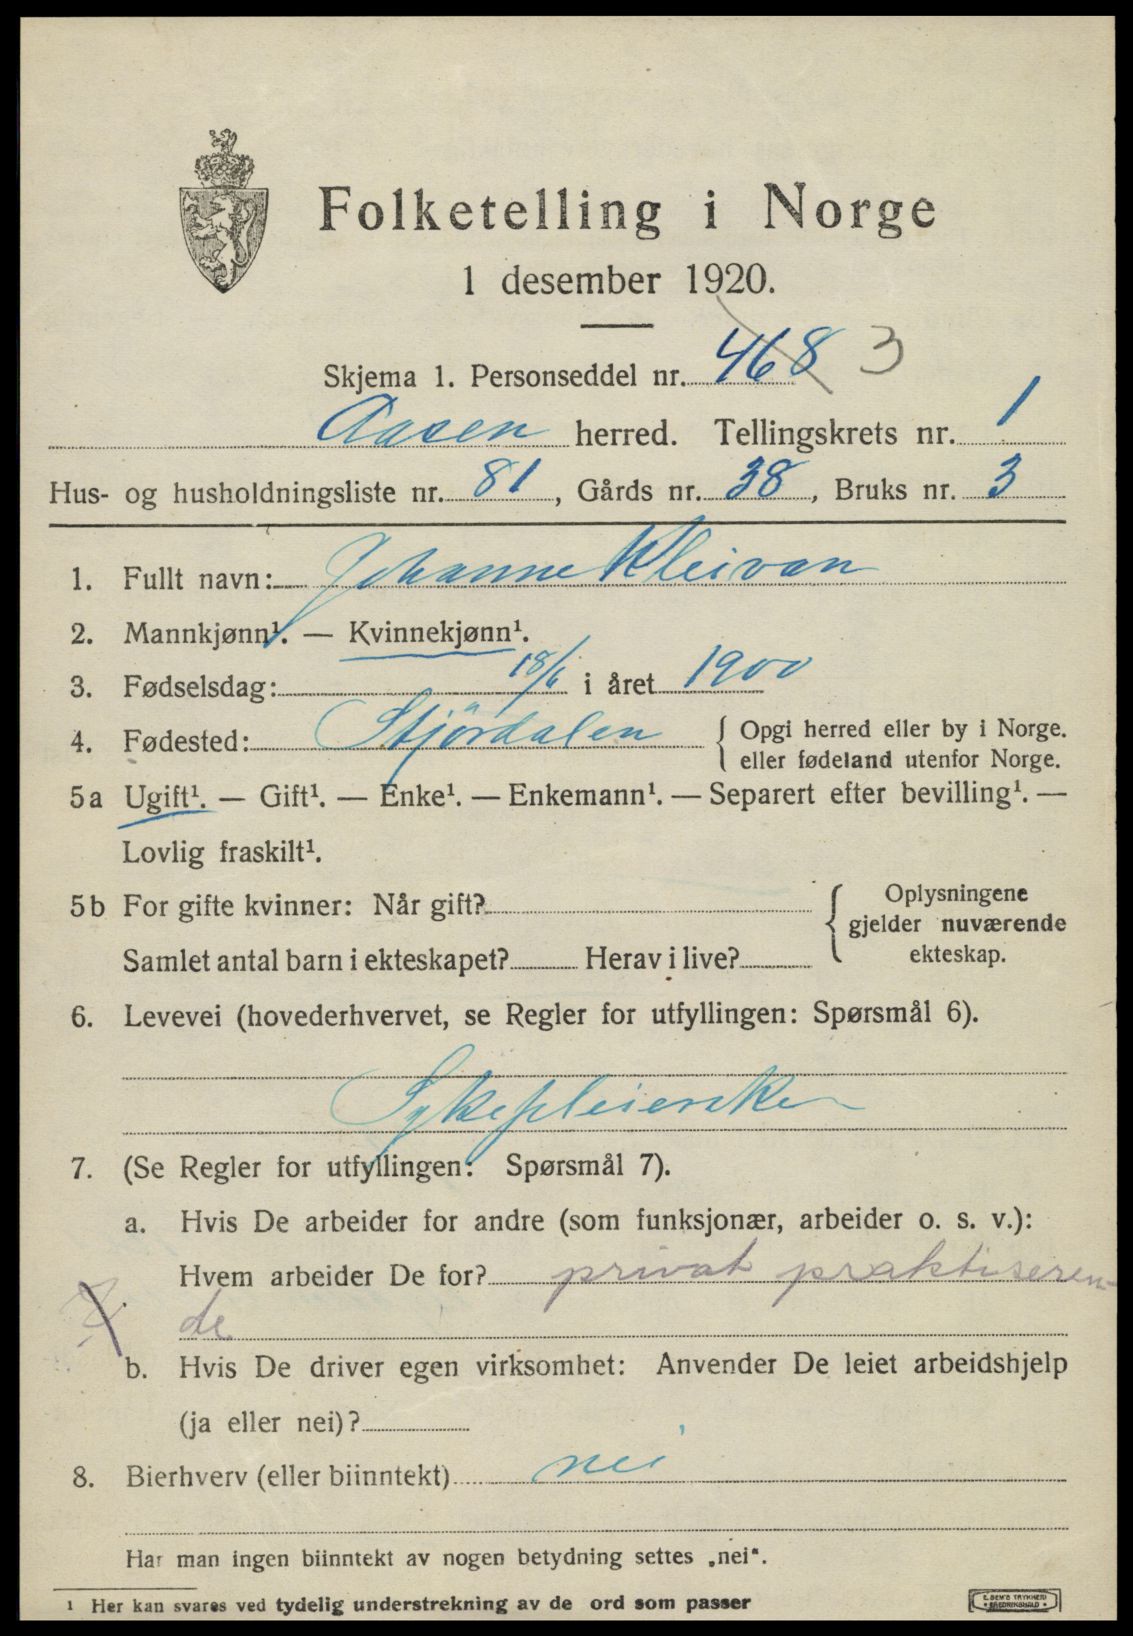 Folketelling i Norge
1 desember 1920.
Skjema 1. Personseddel nr. 468 3
Aasen herred. Tellingskrets nr. 1
Hus- og husholdningsliste nr. 81, Gårds nr. 38, Bruks nr. 3
1. Fullt navn: Johanne Kleivan
2. Mannkjønn¹. — Kvinnekjønn¹.
3. Fødselsdag: 18/6 i året 1900
4. Fødested: Stjördalen { Opgi herred eller by i Norge.
eller fødeland utenfor Norge.
5a Ugift¹. — Gift¹. — Enke¹. — Enkemann¹. — Separert efter bevilling¹. —
Lovlig fraskilt¹.
5b For gifte kvinner: Når gift? { Oplysningene
gjelder nuværende
Samlet antal barn i ekteskapet? Herav i live? ekteskap.
6. Levevei (hovederhvervet, se Regler for utfyllingen: Spørsmål 6).
Sykepleierske
7. (Se Regler for utfyllingen: Spørsmål 7).
a. Hvis De arbeider for andre (som funksjonær, arbeider o. s. v.):
Hvem arbeider De for? privat praktiseren-
de
b. Hvis De driver egen virksomhet: Anvender De leiet arbeidshjelp
(ja eller nei)?
8. Bierhverv (eller biinntekt) nei
Har man ingen biinntekt av nogen betydning settes „nei“.
¹ Her kan svares ved tydelig understrekning av de ord som passer
E. SEM'S TRYKKERI
FREDRIKSHALD